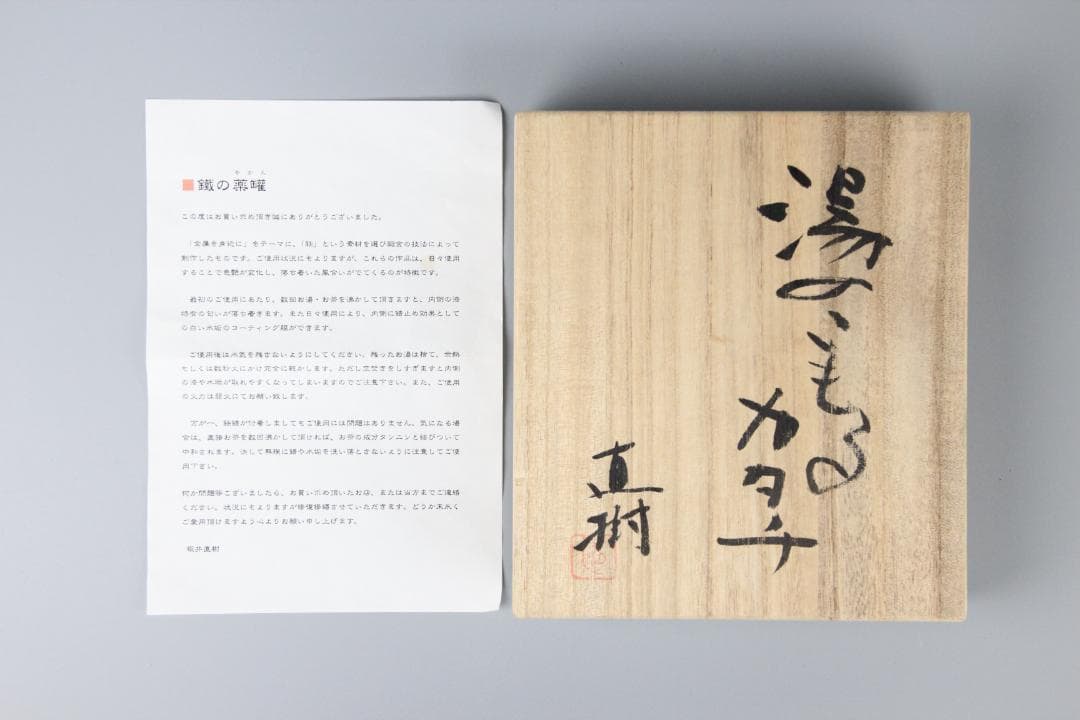 やかん
鐵の薬罐
この度はお買い求め頂き誠にありがとうございました。
「金属を身近に」をテーマに、「鉄」という素材を選び鍛金の技法によって
制作したものです。ご使用状況にもよりますが、これらの作品は、日々使用
することで色艶が変化し、落ち着いた風合いがでてくるのが特徴です。
最初のご使用にあたり、数回お湯・お茶を沸かして頂きますと、内側の漆
特有の匂いが落ち着きます。また日々使用により、内側に錆止め効果として
の白い水垢のコーティング膜ができます。
ご使用後は水気を残さないようにしてください。残ったお湯は捨て、余熱
もしくは数秒火にかけ完全に乾かします。ただし空焚きをしすぎますと内側
の漆や水垢が取れやすくなってしまいますのでご注意下さい。また、ご使用
の火力は弱火にてお願い致します。
万が一、錆が付着しましてもご使用には問題はありません。気になる場
合は、直接お茶を数回沸かして頂ければ、お茶の成分タンニンと結びついて
中和されます。決して無理に錆や水垢を洗い落とさないように注意してご使
用下さい。
何か問題等ございましたら、お買い求め頂いたお店、または当方までご連絡
ください。状況にもよりますが修復修繕させていただきます。どうか末永く
ご愛用頂けますよう心よりお願い申し上げます。
坂井直樹
湯の
カタチ
直樹